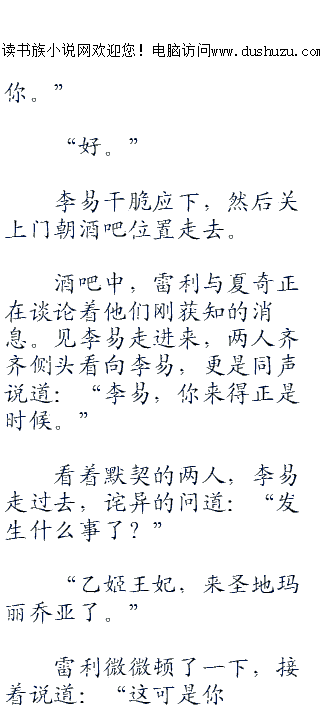 读书族小说网欢迎您！电脑访问www.dushuzu.com
你。”
“好。”
李易干脆应下，然后关
上门朝酒吧位置走去。
酒吧中，雷利与夏奇正
在谈论着他们刚获知的消
息。见李易走进来，两人齐
齐侧头看向李易，更是同声
说道：“李易，你来得正是
时候。”
看着默契的两人，李易
走过去，诧异的问道：“发
生什么事了？”
“乙姬王妃，来圣地玛
丽乔亚了。”
雷利微微顿了一下，接
着说道：“这可是你